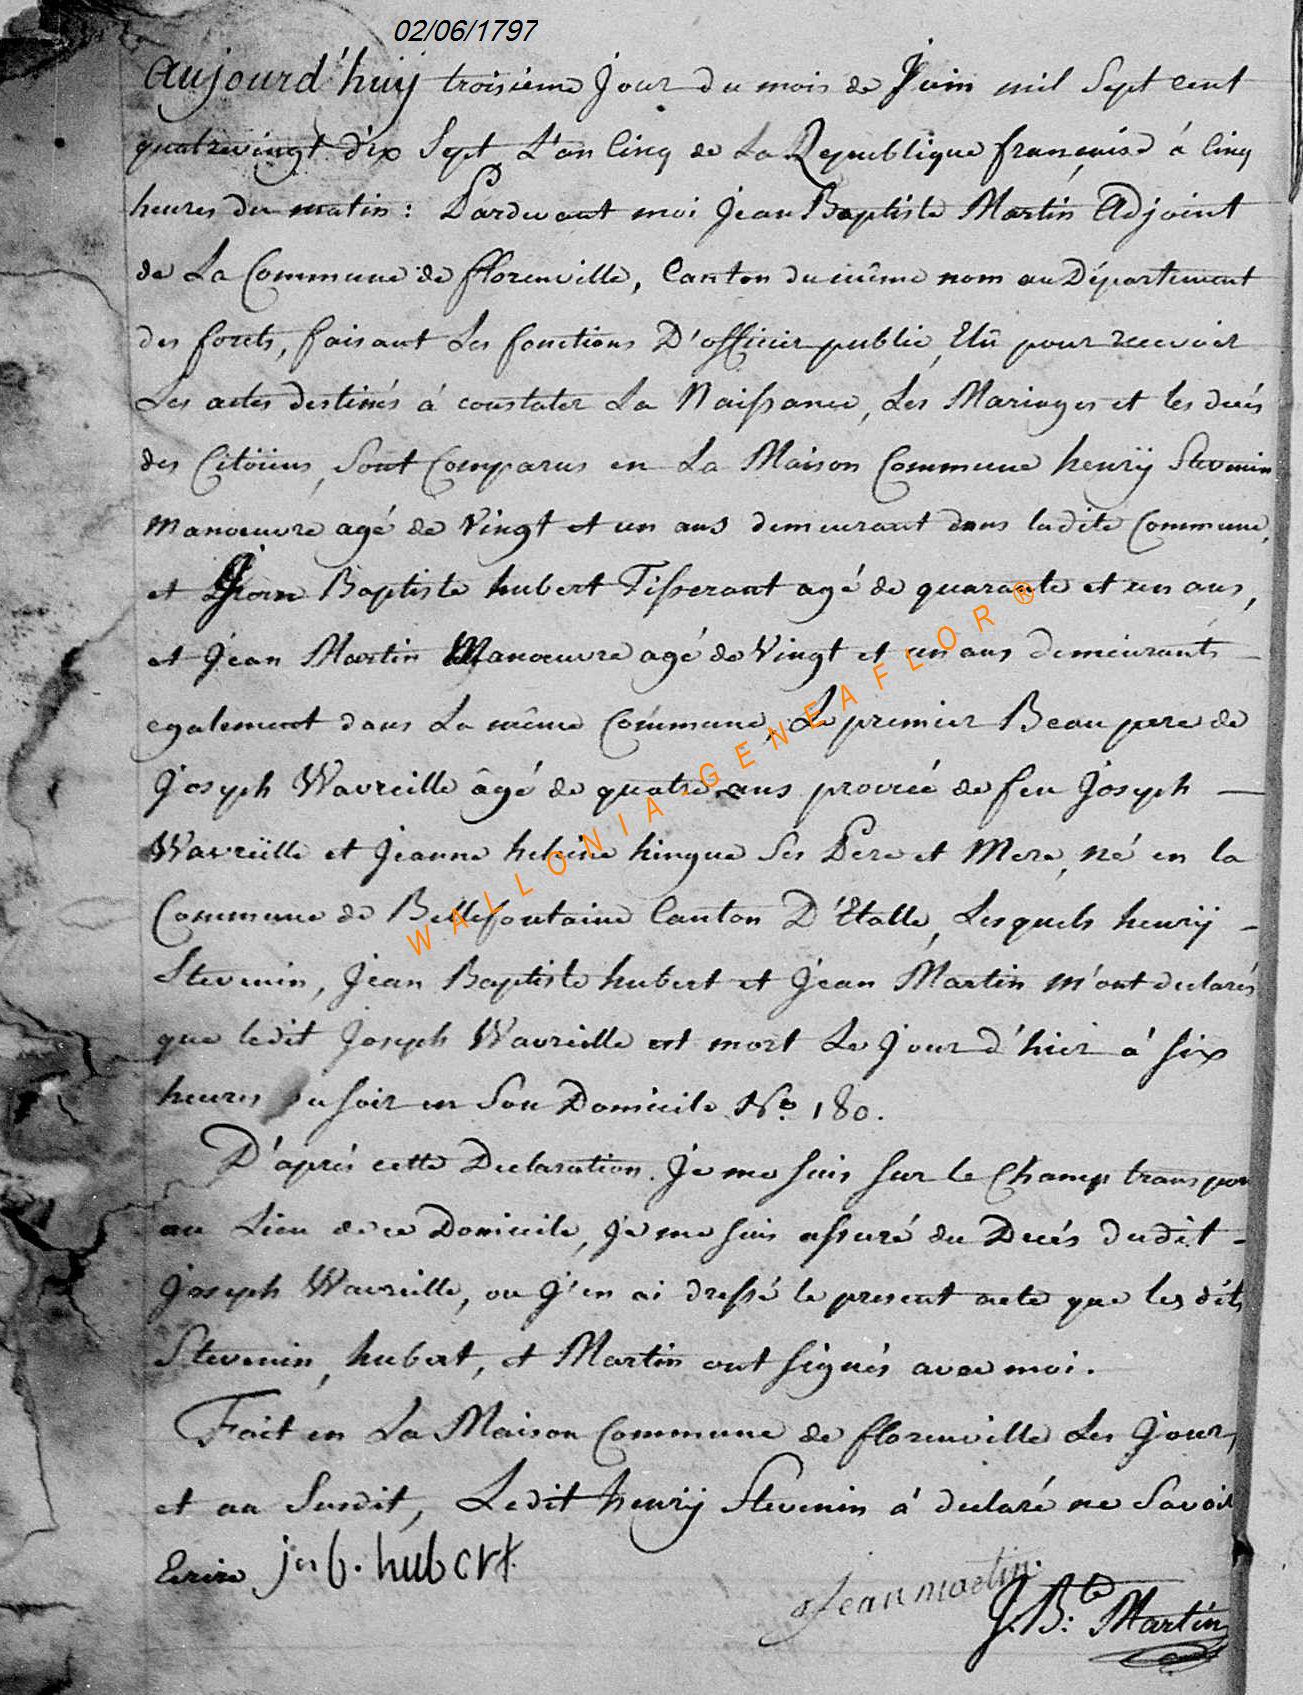 02/06/1797
Aujourd'huij troisieme Jour du mois de Juin mil Sept cent
quatrevingt dix Sept, L'an Cinq de La Republique française à Cinq
heures du matin : Pardevant moi Jean Baptiste Martin Adjoint
de La Commune de fflorenville, Canton du même nom au Département
des forets, faisant Les fonctions D'officier public, Elû pour recevoir
Les actes destinés á constater La Naissance, Les Mariages et les decés
des Citöiens, Sont Comparus en La Maison Commune henrÿ Stevenin
Manoeuvre agé de Vingt et un ans demeurant dans ladite Commune,
et Jean Baptiste hubert Tisserant agé de quarante et un ans,
et Jean Martin Manoeuvre agé de Vingt et un ans demeurants
egalement dans La même Commune, Le premier Beau pere de
Joseph Wavreille âgé de quatre ans procréé de feu Joseph —
Wavreille et Jeanne heleine hingue Ses Pere et Mere, né en la
Commune de Bellefontaine Canton D'Etalle, Lesquels henrÿ -
Stevenin, Jean Baptiste hubert et Jean Martin m'ont declarés
que ledit Joseph Wavreille est mort Le Jour d'hier à six
heures du soir en Son Domicile N.o 180.
D'aprés cette Declaration. Je me suis sur le Champ transpor
au Lieu de ce Domicile, Je me suis assuré du Decés dudit -
Joseph Wavreille, ou J'en ai dressé le present acte que les dits
Stevenin, hubert, et Martin ont signés avec moi.
Fait en La Maison Commune de fflorenville Les Jour,
et an Susdit, Ledit henrÿ Stevenin á declaré ne Savoir
Ecrire j b. hubert.
Jean martin.
J. B.te Martin
WALLONIA-GENEAFLOR®